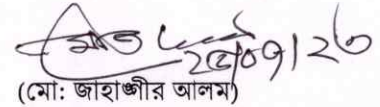 ২৫/০৭/২৩
(মো: জাহাঙ্গীর আলম)